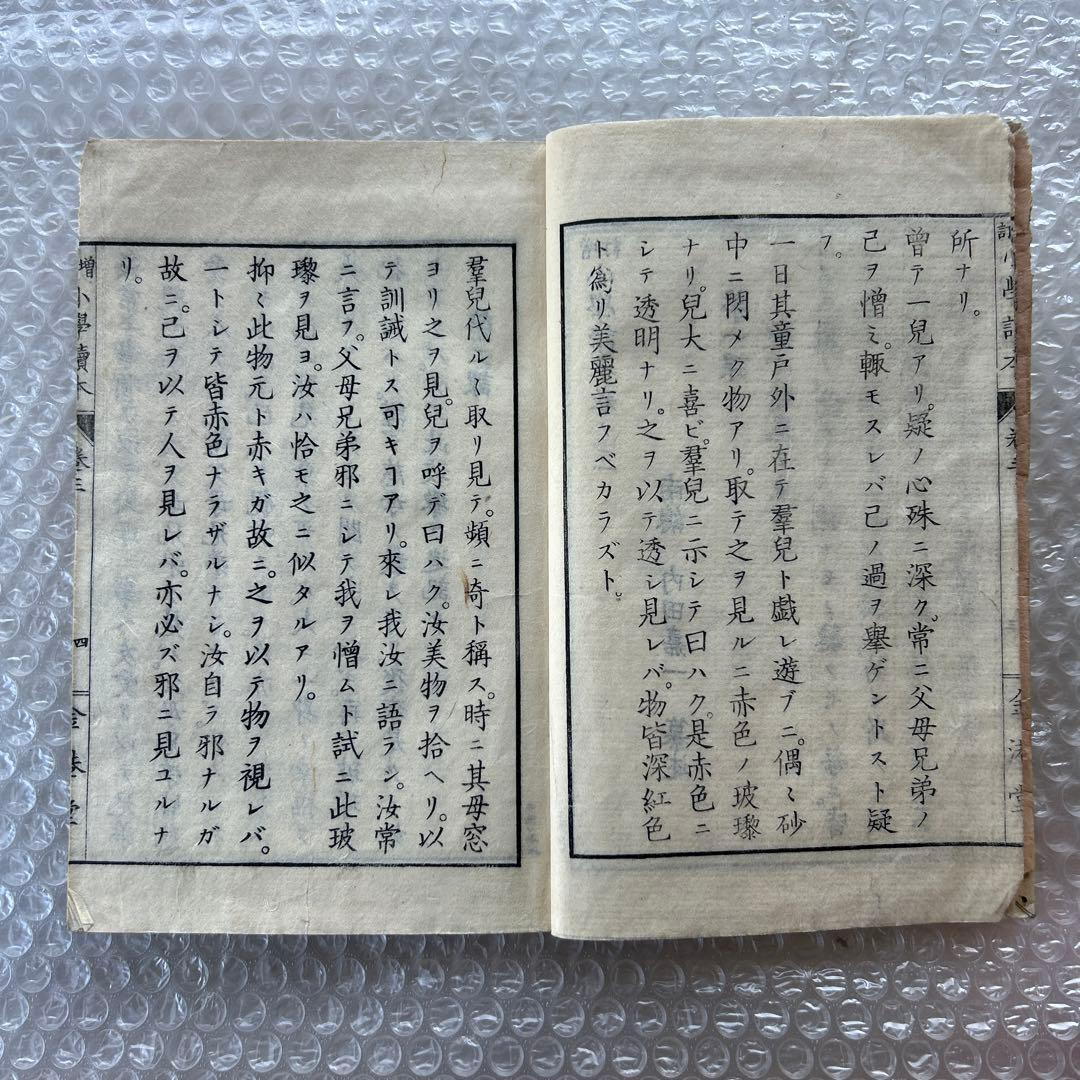 所ナリ。
曾テ一兒アリ。疑ノ心殊ニ深ク。常ニ父母兄弟ノ
己ヲ憎ミ。輙モスレバ己ノ過ヲ擧ゲントスト疑
フ。
一日其童戸外ニ在テ羣兒ト戯レ遊ブニ。偶〻砂
中ニ閃メク物アリ。取テ之ヲ見ルニ赤色ノ玻瓈
ナリ。兒大ニ喜ビ。羣兒ニ示シテ曰ハク。是赤色ニ
シテ透明ナリ。之ヲ以テ透シ見レバ。物皆深紅色
ト爲リ美麗言フベカラズト。
羣兒代ル〻取リ見テ。頻ニ奇ト稱ス。時ニ其母窓
ヨリ之ヲ見。兒ヲ呼デ曰ハク。汝美物ヲ拾ヘリ。以
テ訓誡トス可キヿアリ。來レ我汝ニ語ラン。汝常
ニ言フ。父母兄弟邪ニシテ我ヲ憎ムト試ニ此玻
瓈ヲ見ヨ。汝ハ恰モ之ニ似タルアリ。
抑〻此物元ト赤キガ故ニ。之ヲ以テ物ヲ視レバ。
一トシテ皆赤色ナラザルナシ。汝自ラ邪ナルガ
故ニ。己ヲ以テ人ヲ見レバ。亦必ズ邪ニ見ユルナ
リ。
増 小學讀本 卷三 四 金港堂